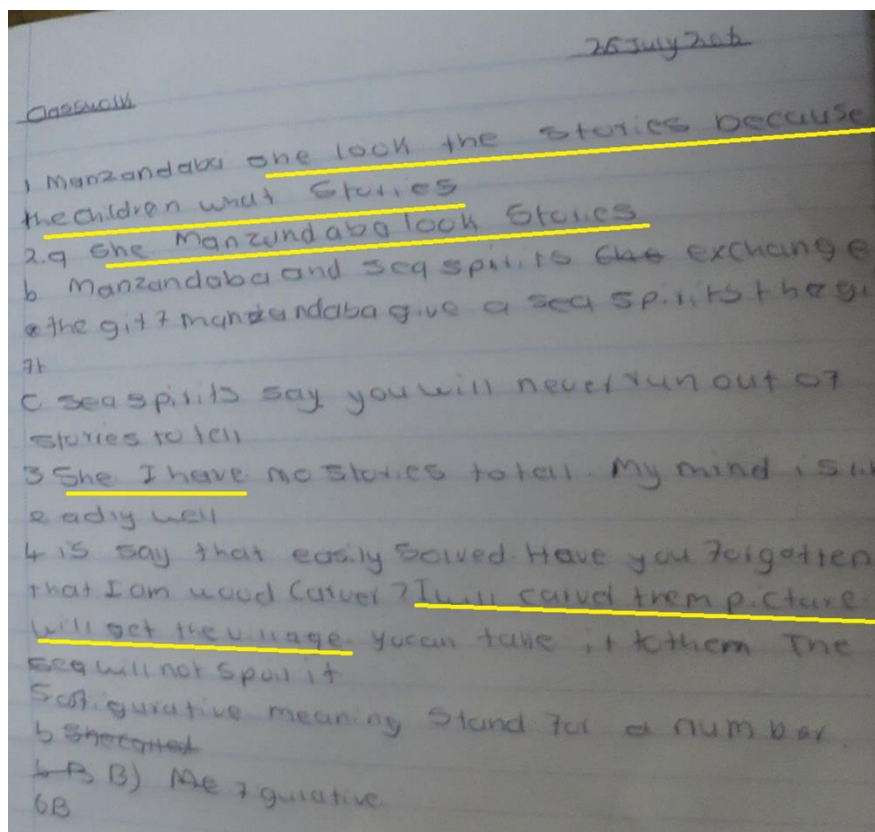 26 July 20
Classwork
1 Manzandaba she look the stories because
the children what stories
2.a She Manzandaba look stories
b Manzandaba and sea spirits exchange
the gift manzandaba give a sea spirits the gi
ft
C sea spirits say you will never run out of
stories to tell
3 She I have no stories to tell. My mind is
e adry well
4 is say that easily solved. Have you forgotten
that I am wood carver? I will carved them picture
will get the village. You can take it to them The
sea will not spoil it
5a figurative meaning stand for a number.
b She
b B B) figurative
6B